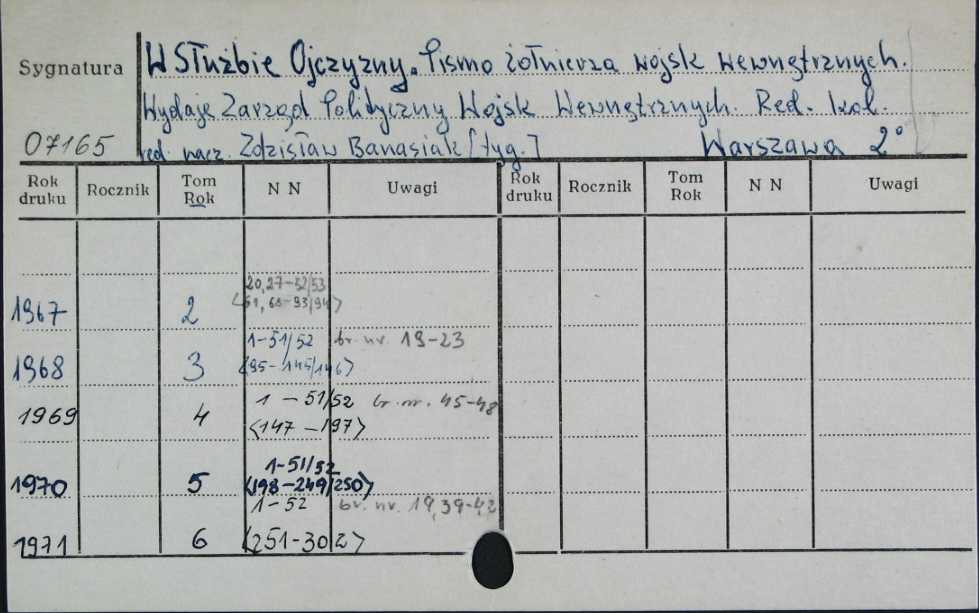 Sygnatura
W Służbie Ojczyzny. Pismo żołnierza wojsk wewnętrznych.
Wydaje Zarząd Polityczny Wojsk Wewnętrznych. Red. kol.
07165
red. nacz. Zdzisław Banasiak [tyg.] Warszawa 2°
Rok druku Rocznik Tom Rok N N Uwagi Rok druku Rocznik Tom Rok N N Uwagi
20,27-52/53
1967 2 <61, 68-93/94>
1-51/52 br. nr. 19-23
1968 3 <95-145/146>
1 - 51/52 br. nr. 45-48
1969 4
<147 - 197>
1-51/52
1970 5 <198-249/250>
1-52 br. nr. 19,39-42
1971 6 <251-302>